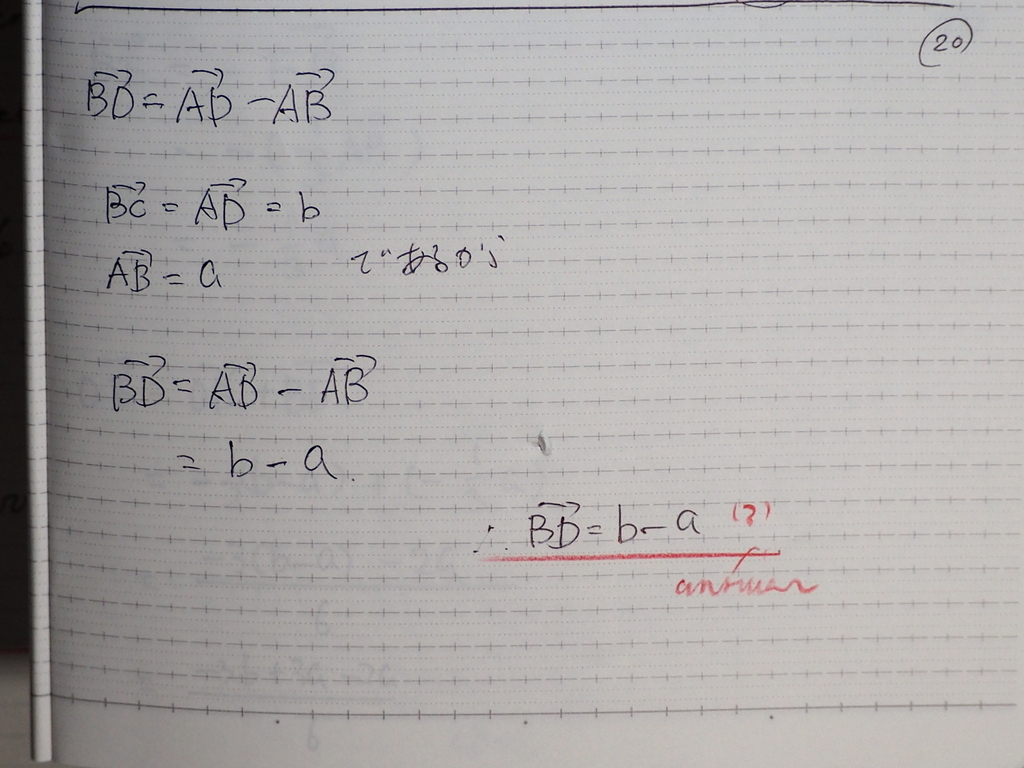 (20)
BD = AD - AB
BC = AD = b
AB = a であるから
BD = AD - AB
= b - a.
∴ BD = b - a (3)
answer